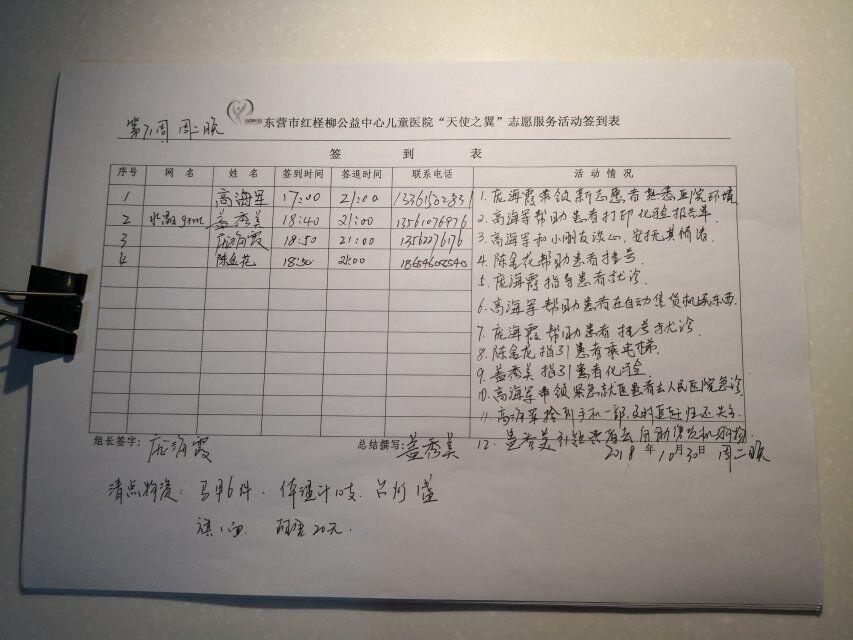 第71周 周二晚
东营市红柽柳公益中心儿童医院“天使之翼”志愿服务活动签到表
签 到 表
序号 网 名 姓 名 签到时间 签退时间 联系电话 活 动 情 况
1 高海军 17:00 21:00 13361522831
2 盖秀美 18:40 21:00 13561076976
3 庞海霞 18:50 21:00 13562276176
4 陈金花 18:50 21:00
1. 庞海霞带领新志愿者熟悉医院环境
2. 高海军帮助患者打印化验报告单.
3. 高海军和小朋友谈心，安抚其情绪.
4. 陈金花帮助患者挂号
5. 庞海霞指导患者就诊.
6. 高海军帮助患者在自动售货机买东西.
7. 庞海霞帮助患者挂号就诊.
8. 陈金花指引患者乘电梯.
9. 盖秀美指引患者化验.
10. 高海军带领紧急就医患者去人民医院急诊
11. 高海军捡到手机一部，及时归还失主.
12. 盖秀美引领患者去自动售货机购物
组长签字： 庞海霞 总结撰写： 盖秀美 2018 年 10月30日 周二晚
清点物资：马甲6件. 体温计12支. 台灯1盏
旗1面. 20元.